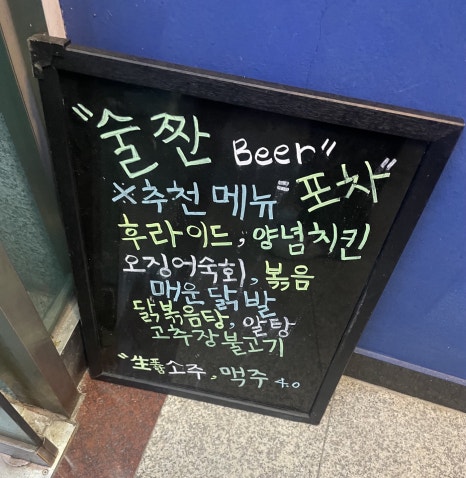 "술짠 Beer"
※추천 메뉴 "포차"
후라이드, 양념치킨
오징어숙회, 볶음
매운 닭발
닭볶음탕, 알탕
고추장불고기
"生 소주, 맥주 4.0